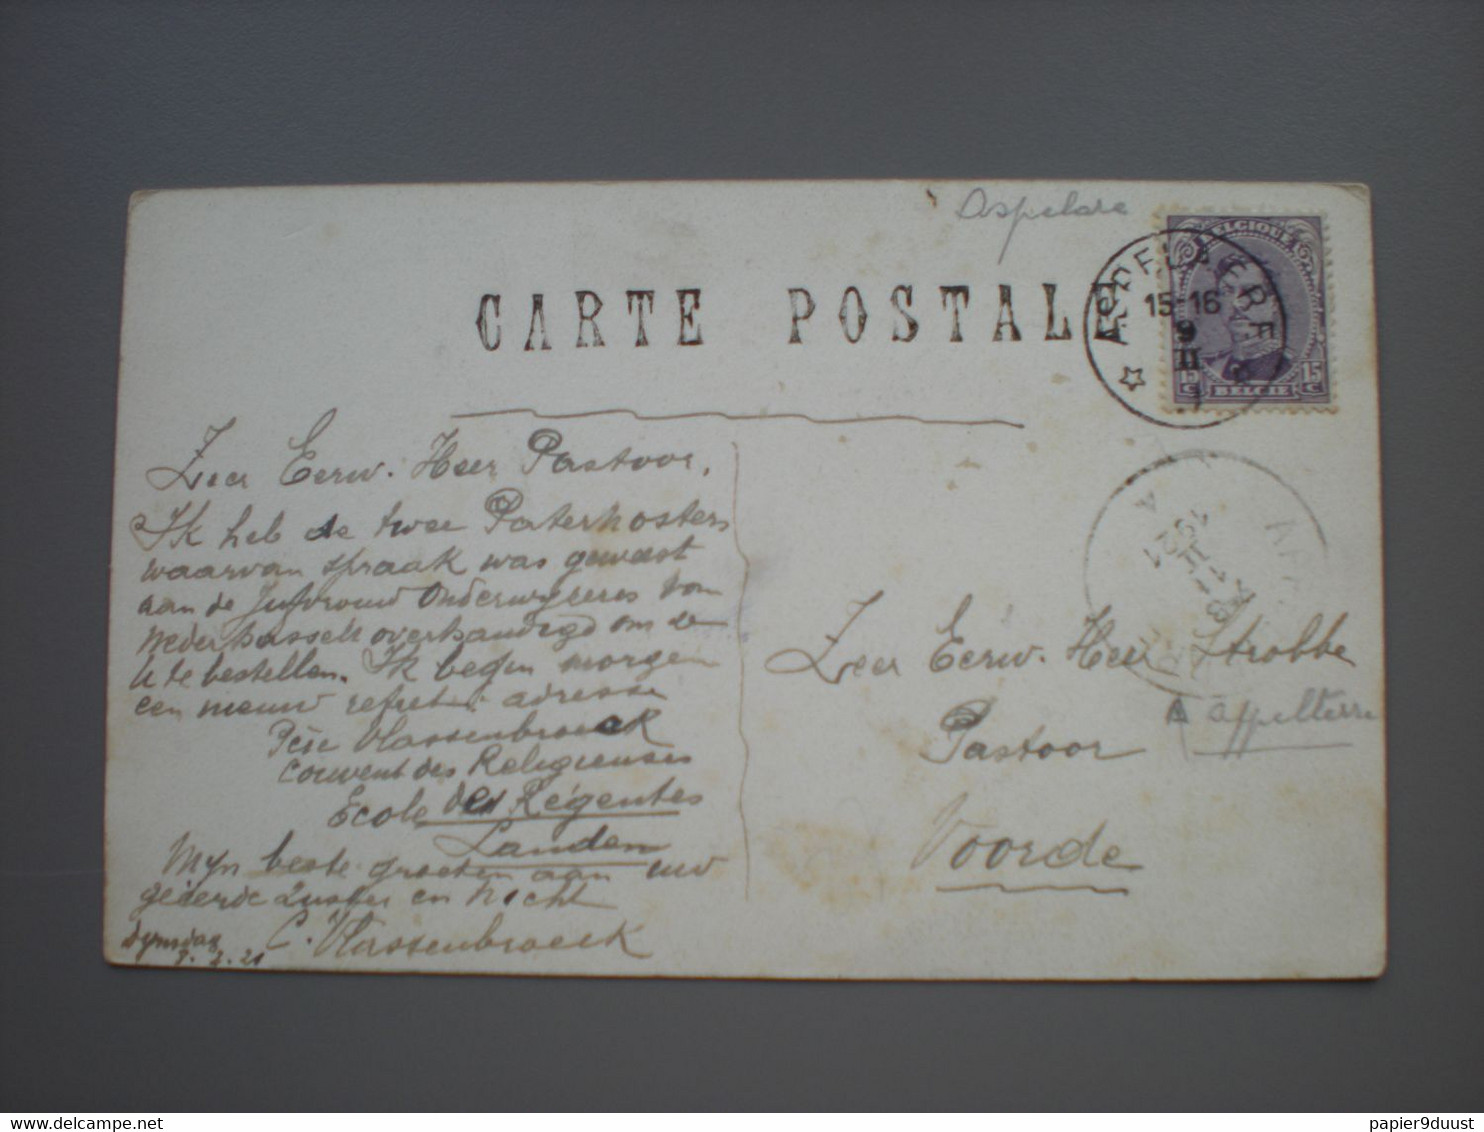 Aspelare
CARTE POSTALE
BELGIQUE
15 C
15 C
BELGIE
15-16
9
II
1921
Zeer Eerw. Heer Pastoor,
Ik heb de twee Paternosters
waarvan spraak was geweest
aan de Jufvrouw Onderwyseres van
Nederhasselt overhandigd om ze
U te bestellen. Ik begin morgen
een nieuw refret: adresse
Père Vlassenbroeck
Couvent des Religieuses
Ecole des Régentes
Landen
Mijn beste groeten aan uw
geëerde Zuster en Nicht
C. Vlassenbroeck
Dynsdag
21
Zeer Eerw. Heer Strobbe
à appelterre
Pastoor
Voorde
delcampe.net
papier9duust